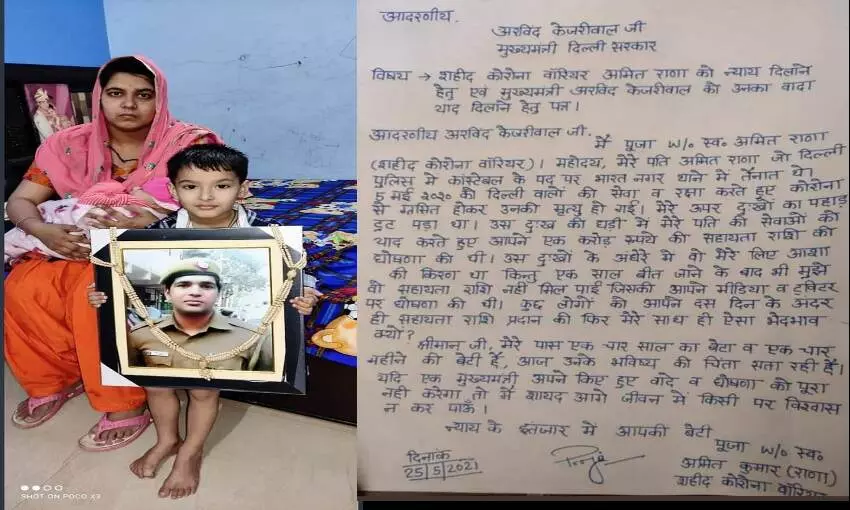 SHOT ON POCO X3
आदरणीय,
अरविंद केजरीवाल जी
मुख्यमंत्री दिल्ली सरकार
विषय → शहीद कोरोना वॉरियर अमित राणा को न्याय दिलाने
हेतु एवं मुख्यमंत्री अरविंद केजरीवाल को उनका वादा
याद दिलाने हेतु पत्र।
आदरणीय अरविंद केजरीवाल जी,
मैं पूजा W/o स्व० अमित राणा
(शहीद कोरोना वॉरियर)। महोदय, मेरे पति अमित राणा जो दिल्ली
पुलिस में कांस्टेबल के पद पर भारत नगर थाने में तैनात थे।
5 मई २०२० को दिल्ली वालों की सेवा व रक्षा करते हुए कोरोना
से ग्रसित होकर उनकी मृत्यु हो गई। मेरे ऊपर दुःखों का पहाड़
टूट पड़ा था। उस दुःख की घड़ी में मेरे पति की सेवाओं को
याद करते हुए आपने एक करोड़ रुपये की सहायता राशि की
घोषणा की थी। उस दुःखों के अंधेरे में वो मेरे लिए आशा
की किरण था किन्तु एक साल बीत जाने के बाद भी मुझे
वो सहायता राशि नहीं मिल पाई जिसकी आपने मीडिया व ट्विटर
पर घोषणा की थी। कुछ लोगों को आपने दस दिन के अंदर
ही सहायता राशि प्रदान की फिर मेरे साथ ही ऐसा भेदभाव
क्यों?
श्रीमान् जी, मेरे पास एक चार साल का बेटा व एक चार
महीने की बेटी है, आज उनके भविष्य की चिंता सता रही है।
यदि एक मुख्यमंत्री अपने किए हुए वादे व घोषणा को पूरा
नहीं करेगा तो मैं शायद आगे जीवन में किसी पर विश्वास
न कर पाऊँ।
न्याय के इंतजार में आपकी बेटी
पूजा W/o स्व०
अमित कुमार (राणा)
शहीद कोरोना वॉरियर
दिनांक
25/5/2021
Pooja